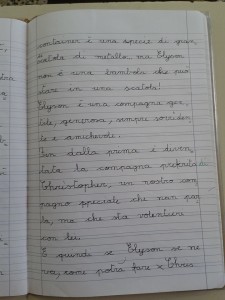 container è una specie di gros
scatola di metallo, ma Elyson
non è una bambola che può
stare in una scatola!
Elyson è una compagna gen
tile, generosa, sempre sorriden
te e amichevole.
Fin dalla prima è diven
tata la compagna preferita di
Christopher, un nostro com
pagno speciale che non par
la, ma che sta volentieri
con lei.
E quindi se Elyson se ne
va, come potrà fare x Chris